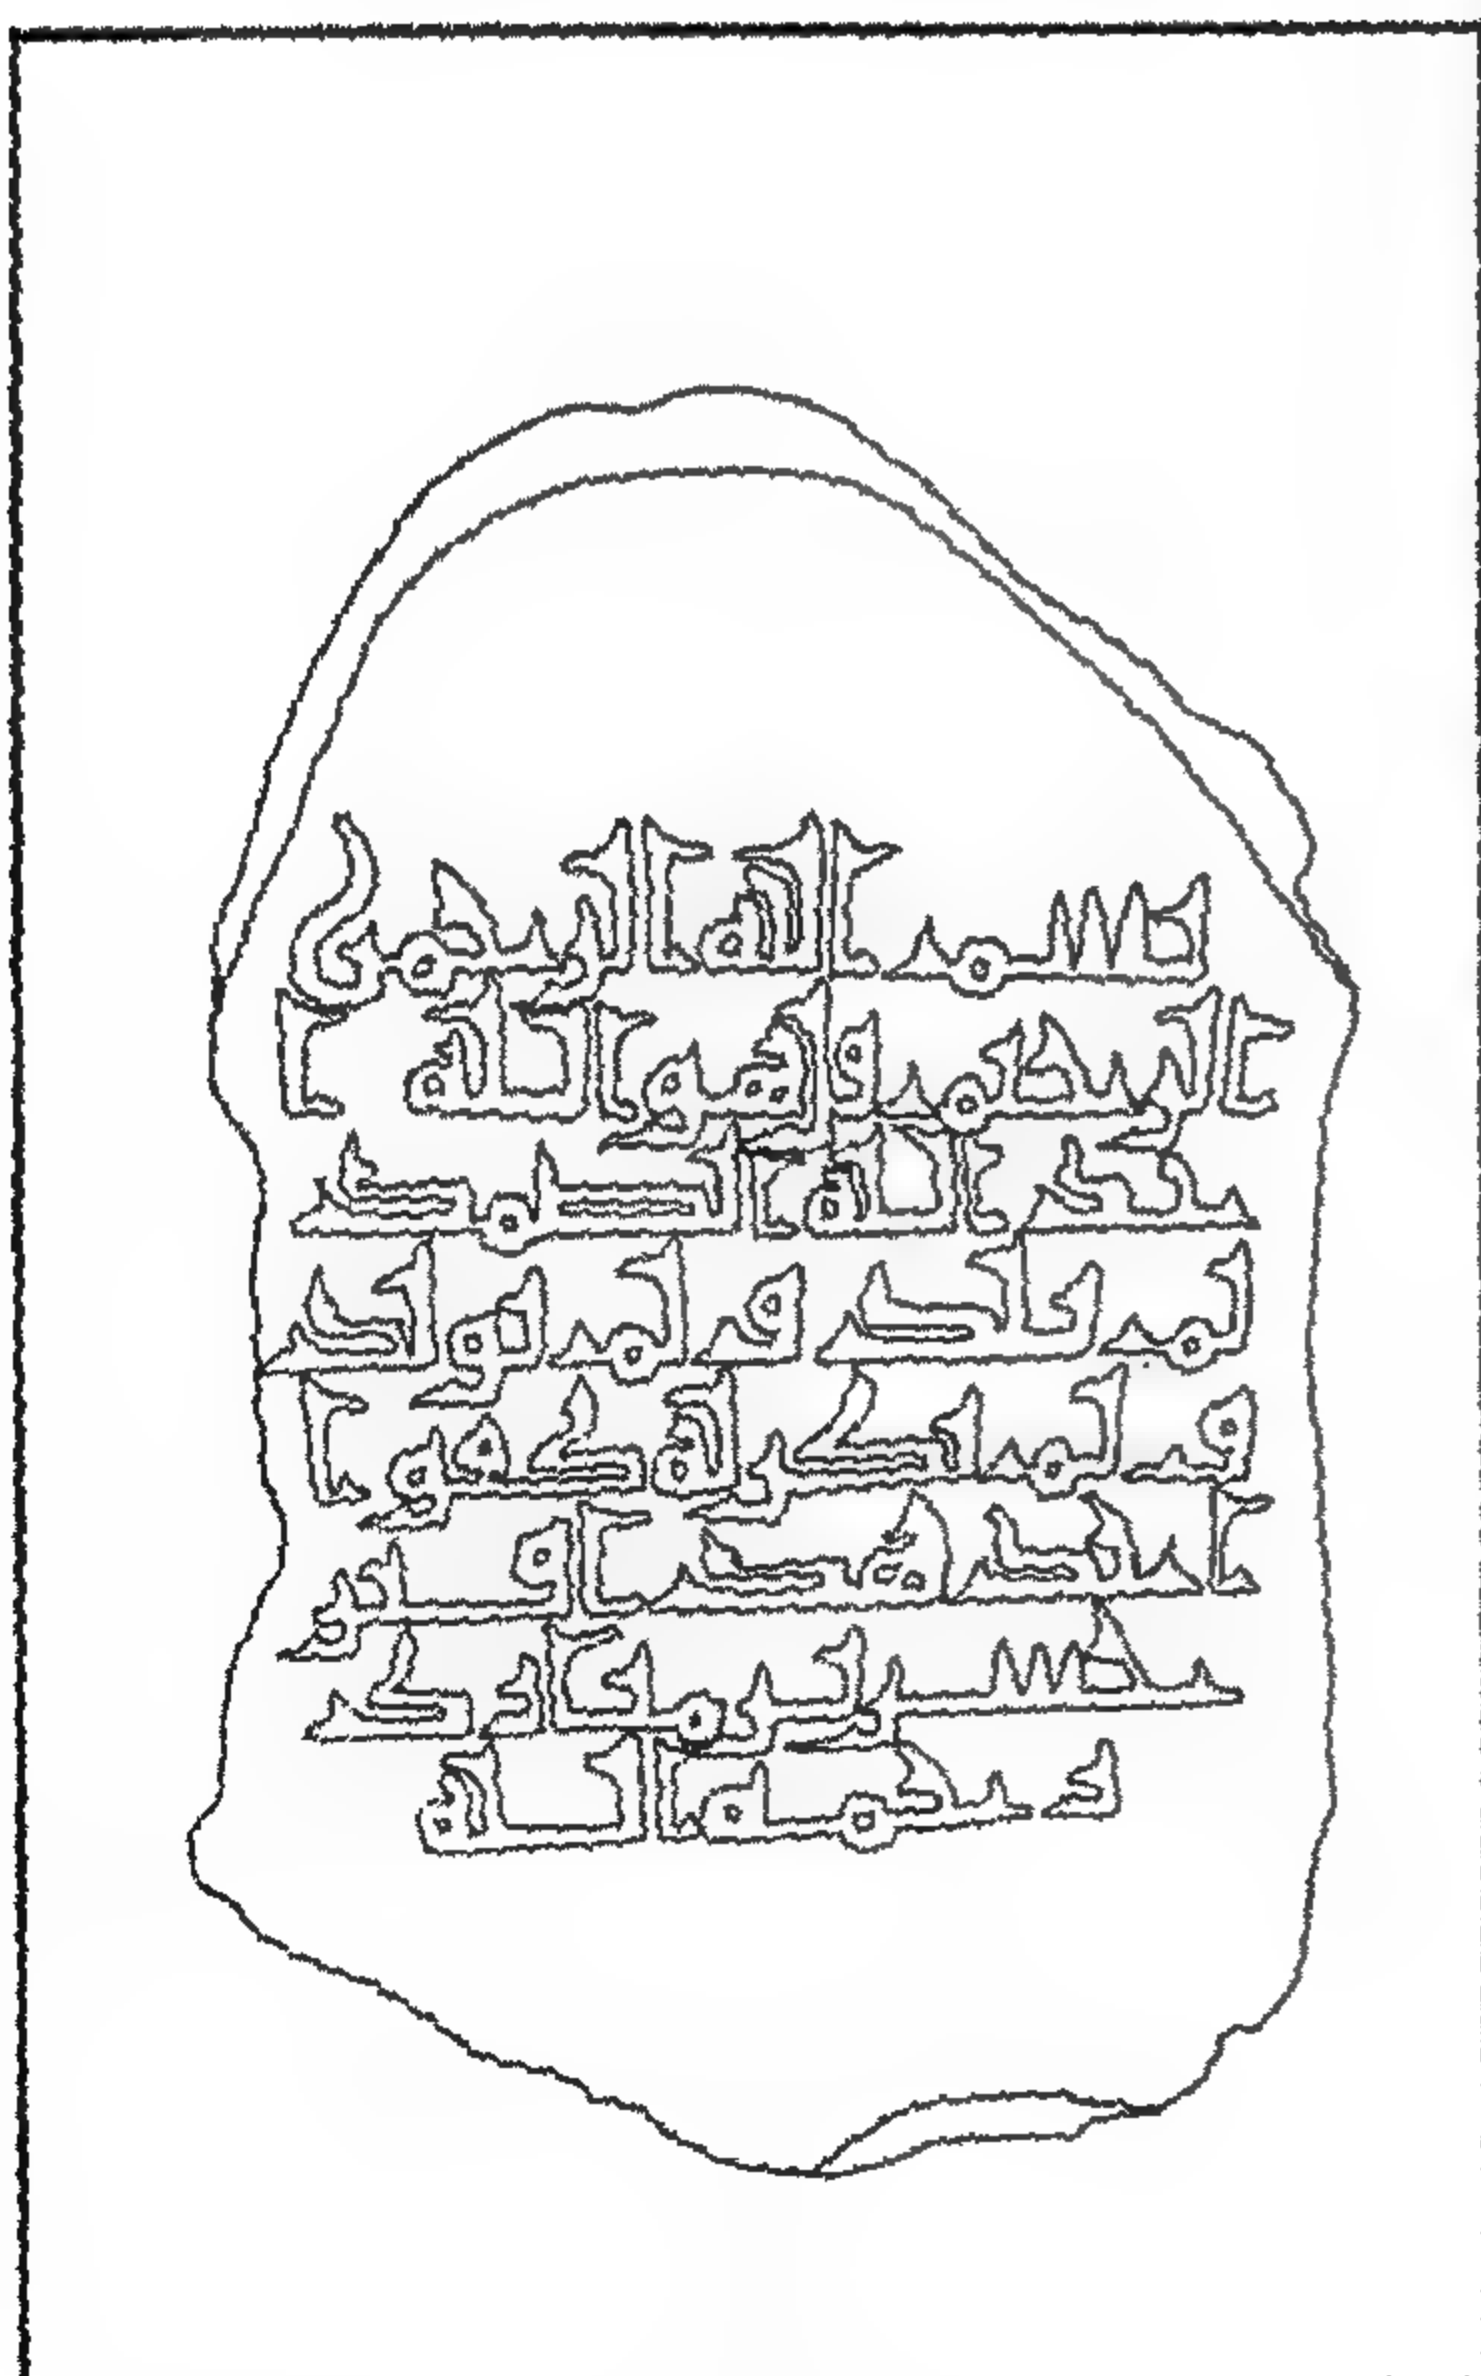 بسم الله الرحمن
الرحيم قل هو الله ا
حد الله الصمد
لم يلد و لم يولد
و لم يكن له كفوا
احد هذا قبر
بن
رحمه الله